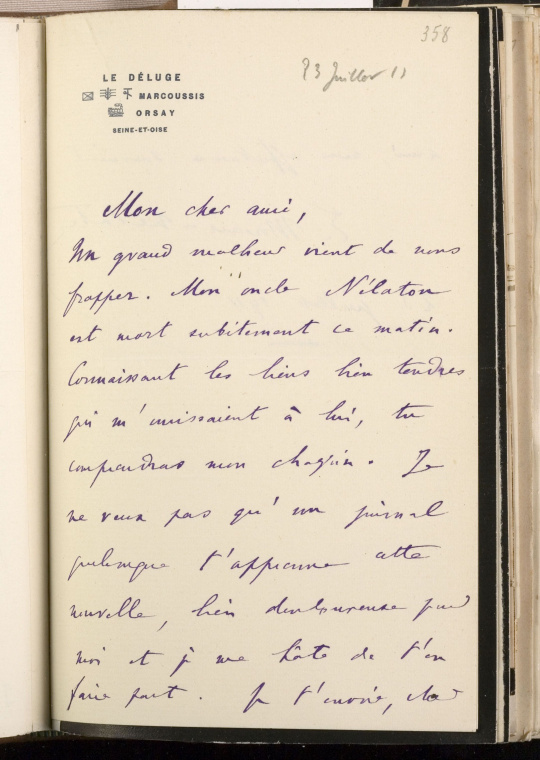 358
23 Juillet 11
LE DÉLUGE
MARCOUSSIS
ORSAY
SEINE-ET-OISE
Mon cher ami,
Un grand malheur vient de nous
frapper. Mon oncle Nélaton
est mort subitement ce matin.
Connaissant les liens bien tendres
qui m'unissaient à lui, tu
comprendras mon chagrin. Je
ne veux pas qu'un journal
quelconque t'apprenne cette
nouvelle, bien douloureuse pour
moi et je me hâte de t'en
faire part. Je t'envoie, cher